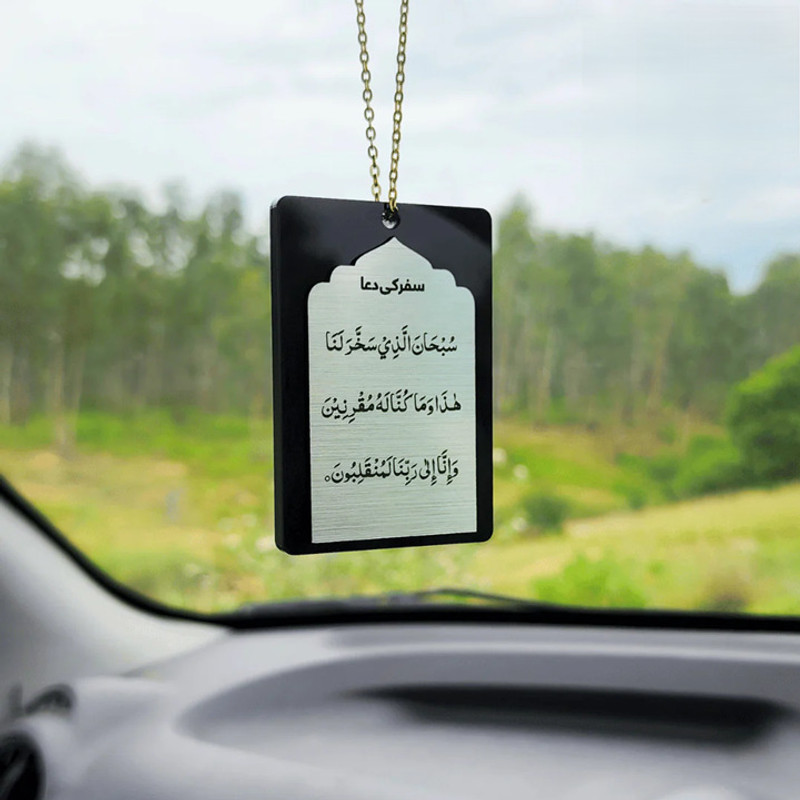 سفر کی دعا
سُبْحَانَ الَّذِيْ سَخَّرَ لَنَا
هٰذَا وَمَا كُنَّا لَهُ مُقْرِنِيْنَ
وَإِنَّا إِلىٰ رَبِّنَا لَمُنْقَلِبُونَ۝